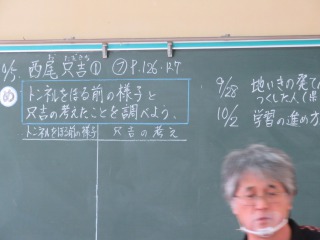 10/5 西尾 只吉① ㋫P.126、127
め トンネルをほる前の様子と
只吉の考えたことを調べよう。
トンネルをほる前の様子 只吉の考え
9/28 地いきの発て
つくした人(県
10/2 学習の進め方